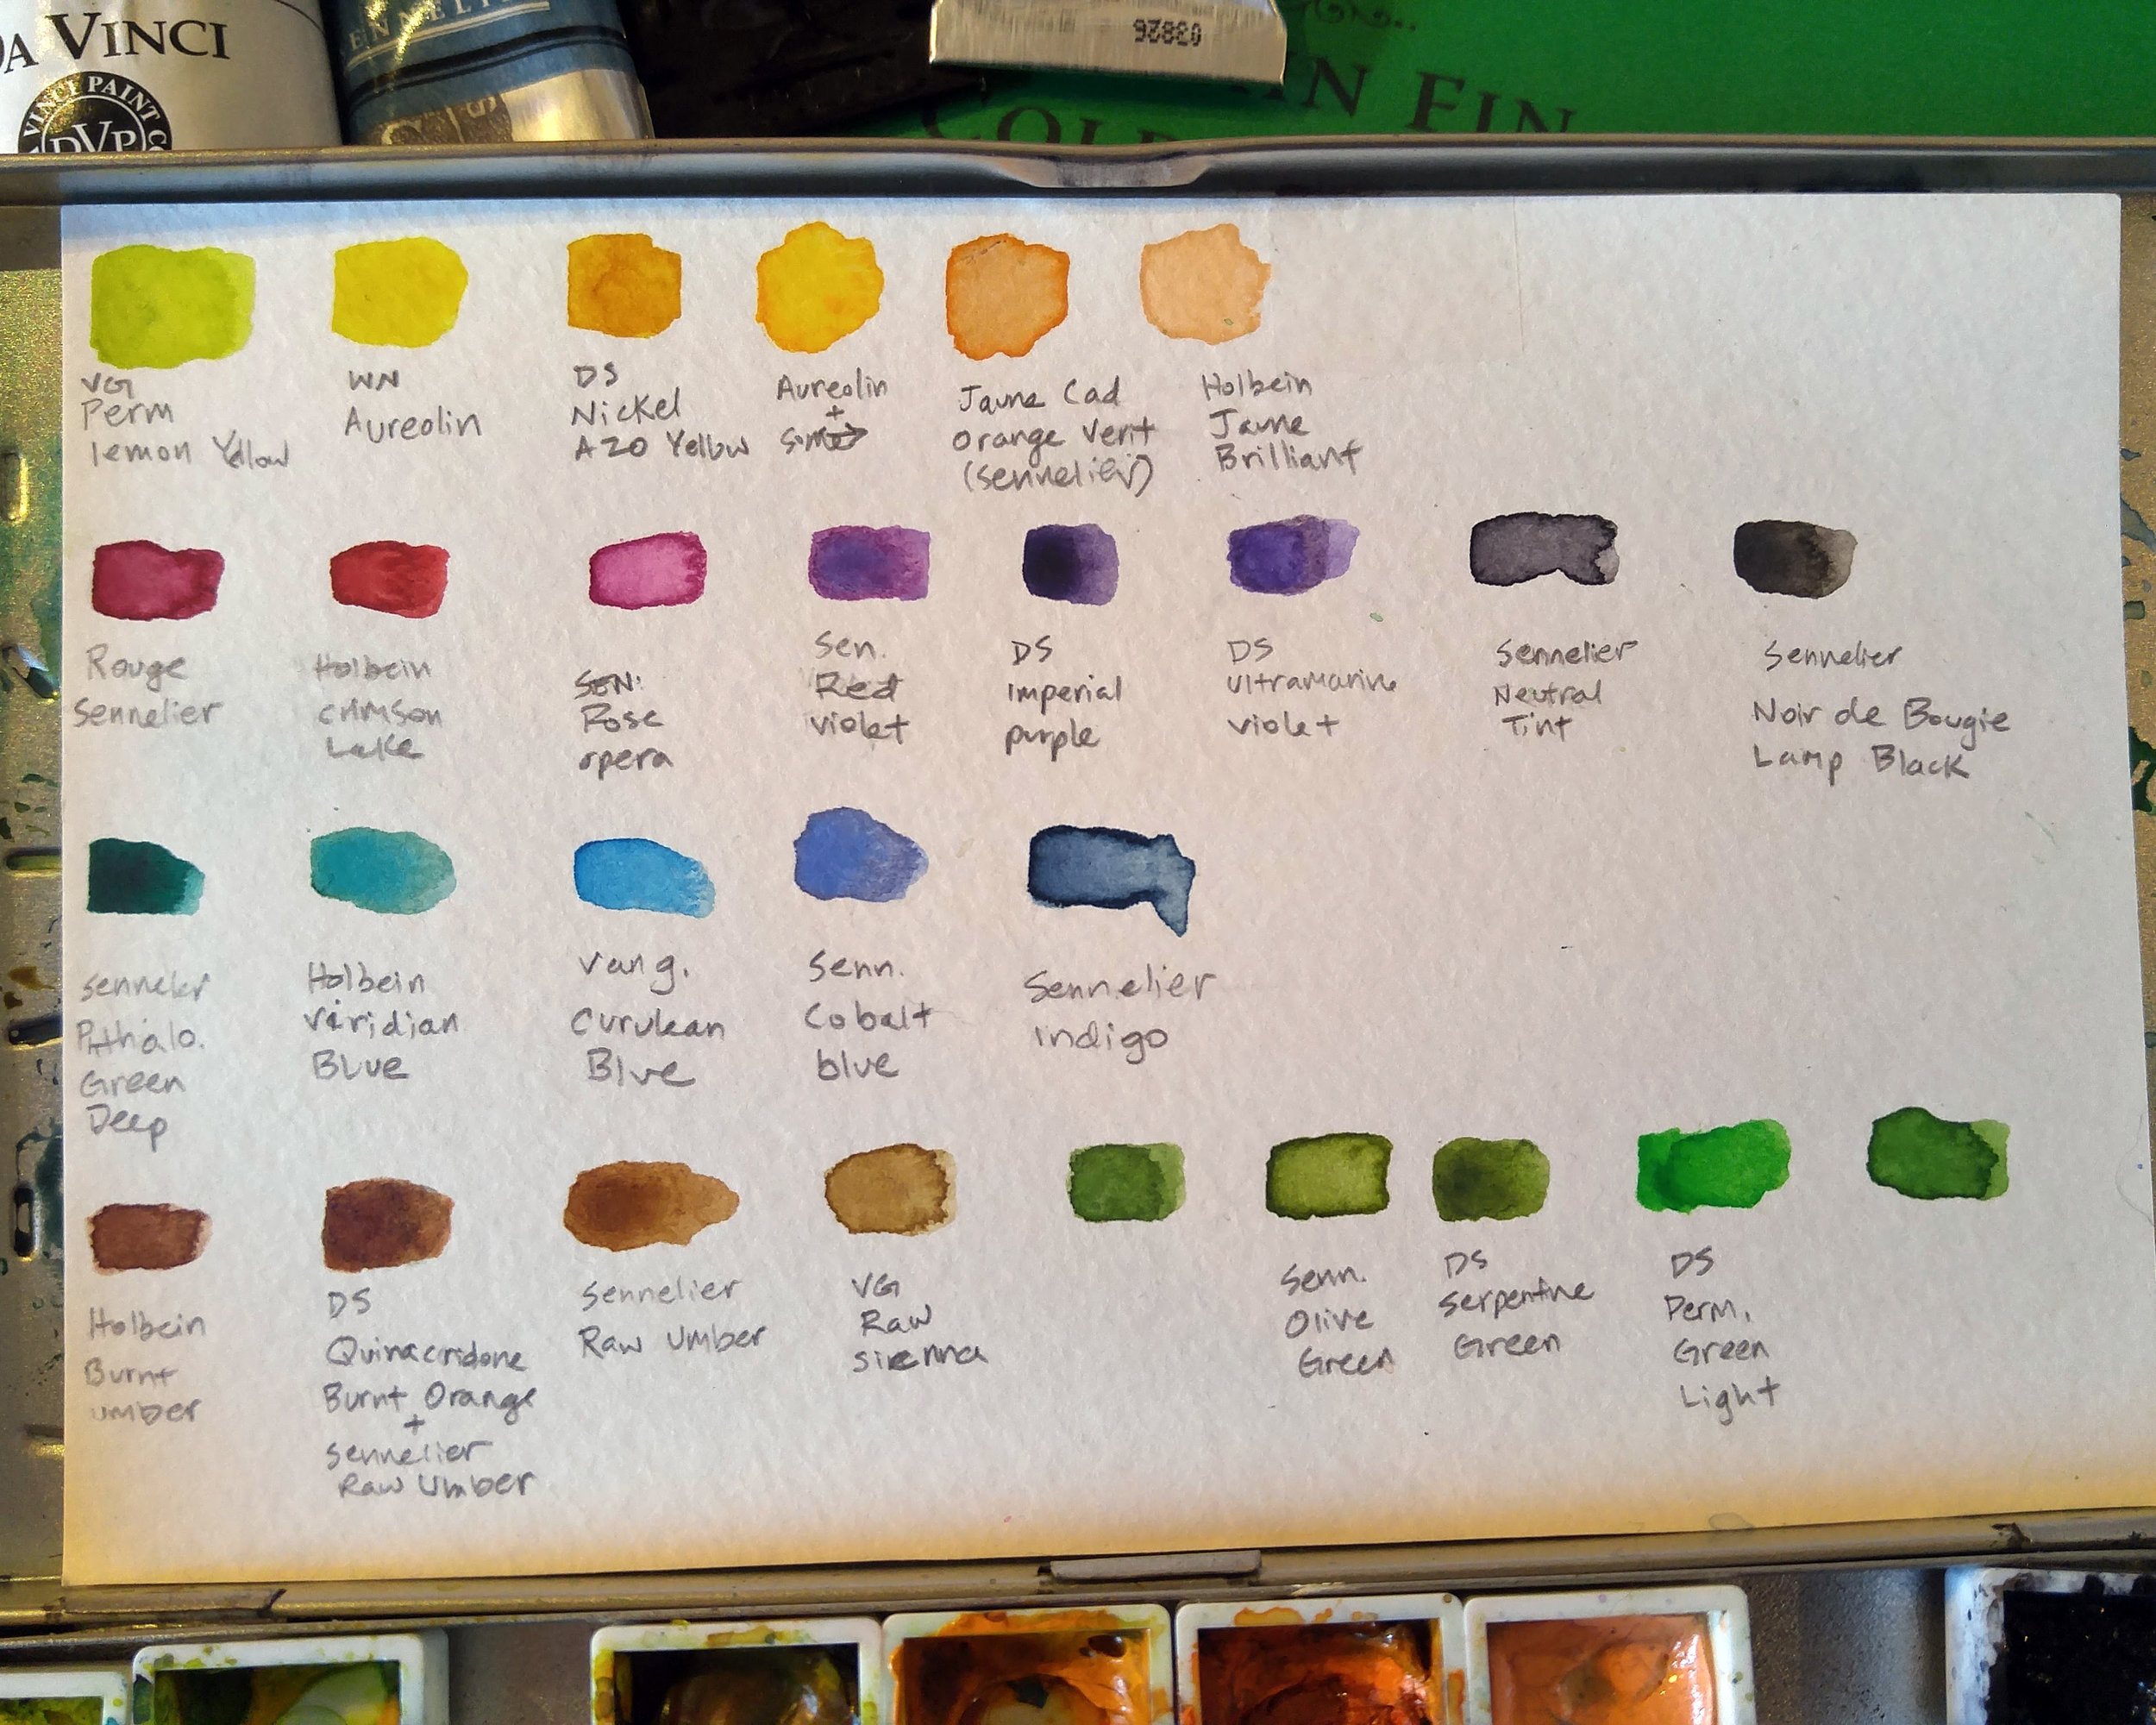 DA VINCI
VINCI PAINT CO
DVP
SENNELIER
03826
COL
IN FIN
VG
Perm
lemon Yellow
WN
Aureolin
DS
Nickel
AZO Yellow
Aureolin
+
Jaune Cad
orange Vert
(Sennelier)
Holbein
Jaune
Brilliant
Rouge
Sennelier
Holbein
crimson
Lake
SEN.
Rose
opera
Sen.
Red
violet
DS
Imperial
purple
DS
Ultramarine
violet
Sennelier
Neutral
Tint
Sennelier
Noir de Bougie
Lamp Black
Sennelier
Pthalo.
Green
Deep
Holbein
Viridian
Blue
Vang.
Curulean
Blue
Senn.
Cobalt
blue
Sennelier
Indigo
Holbein
Burnt
umber
DS
Quinacridone
Burnt Orange
+
Sennelier
Raw Umber
Sennelier
Raw Umber
VG
Raw
sienna
Senn.
Olive
Green
DS
Serpentine
Green
DS
Perm.
Green
Light